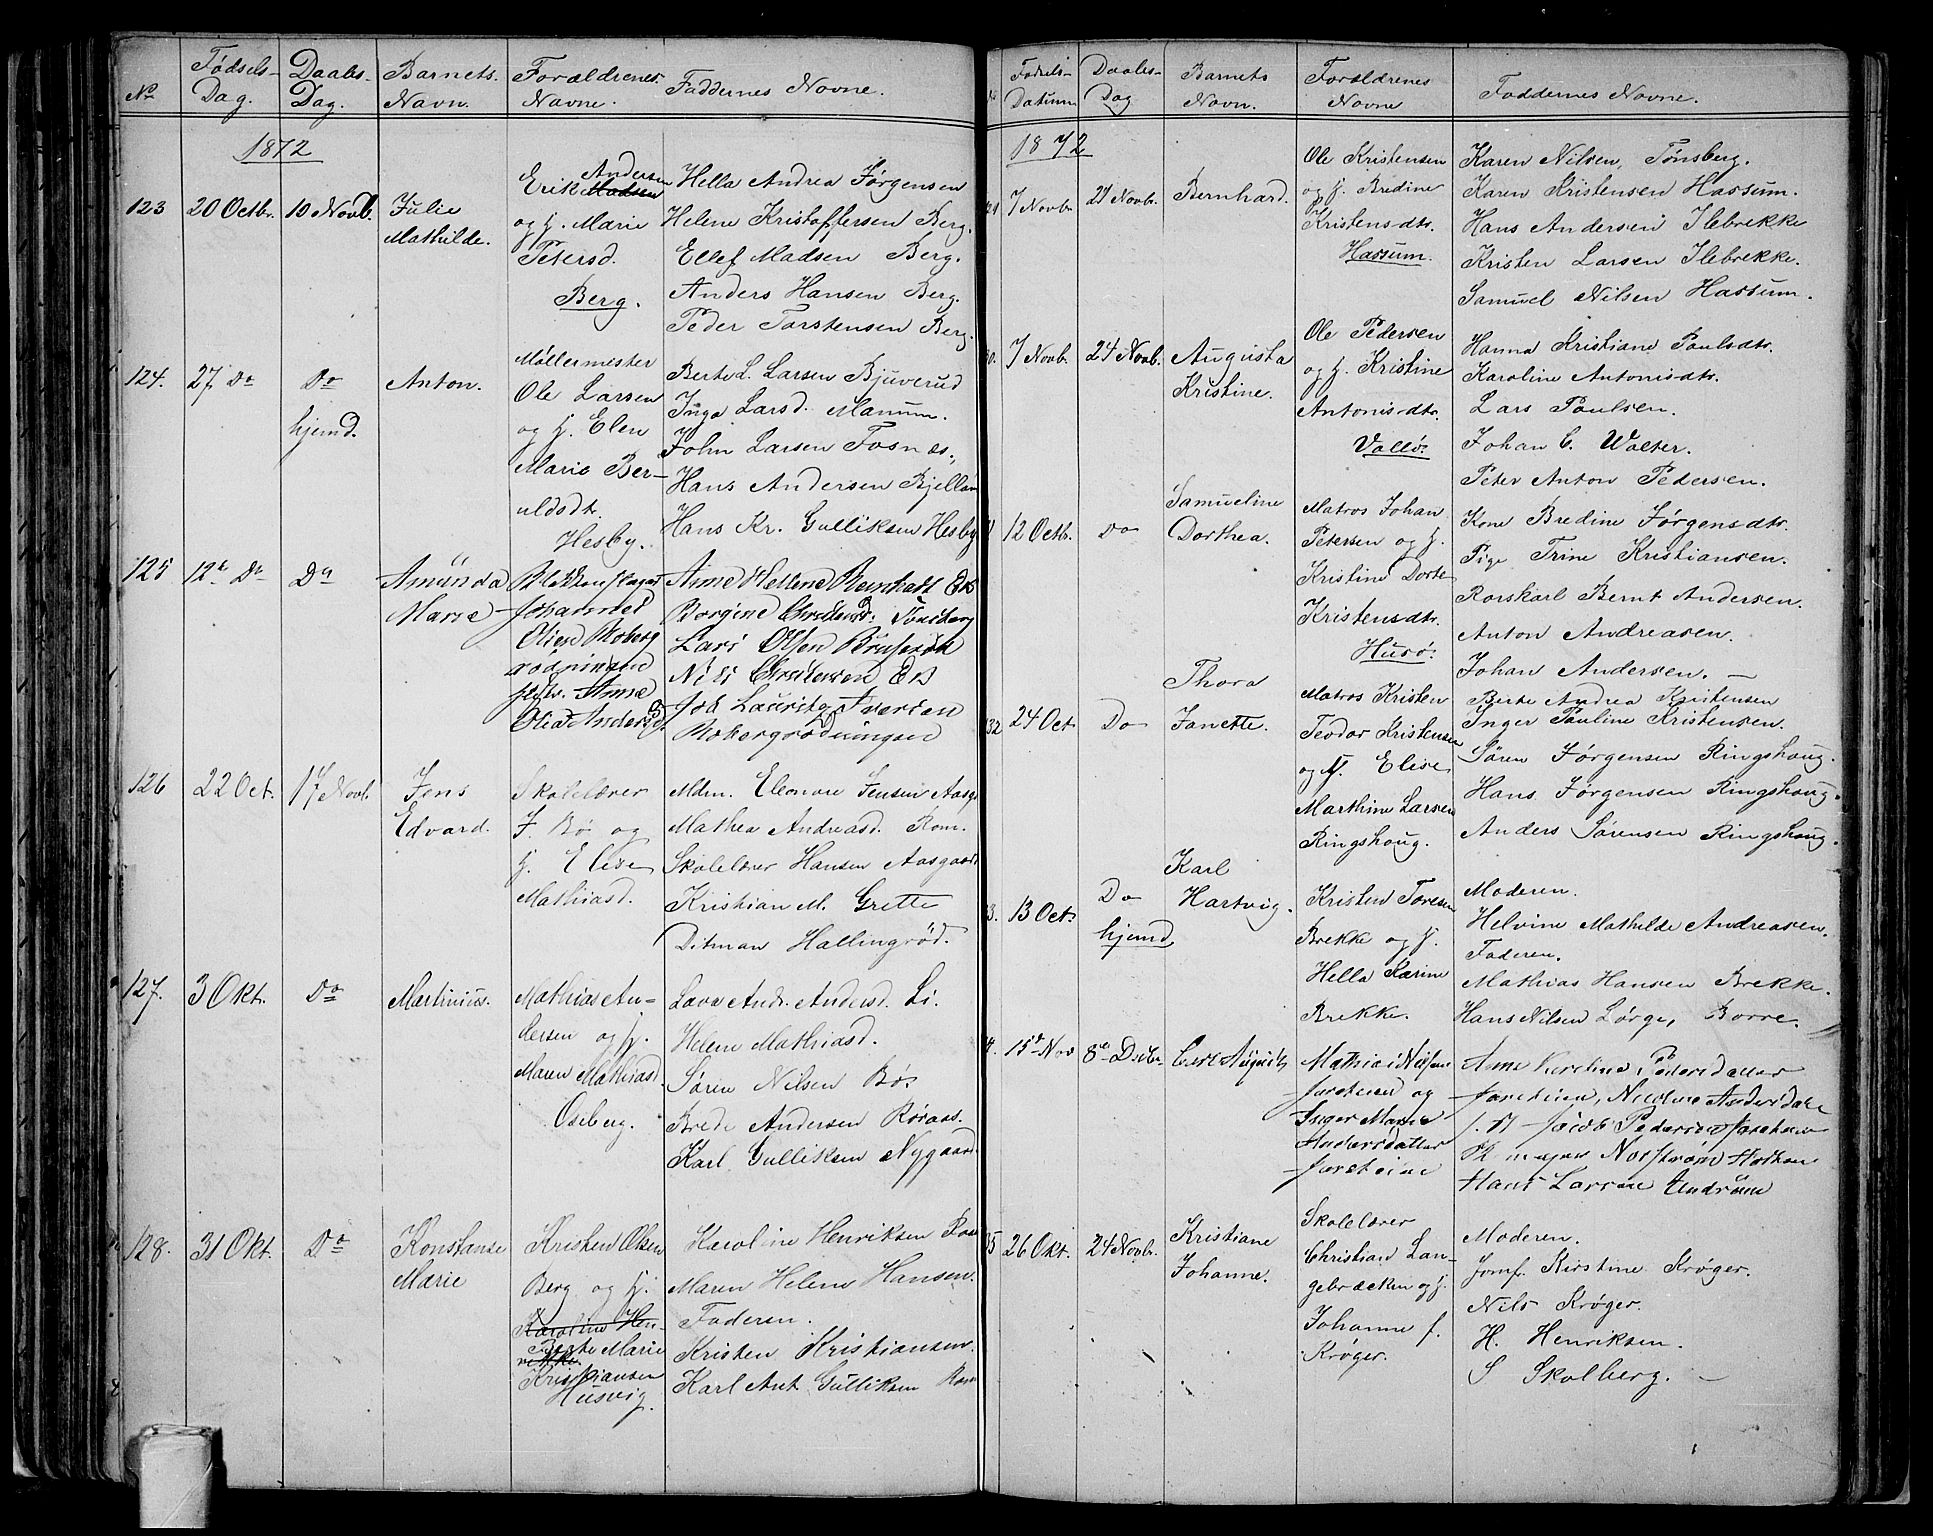 No
Fødsels-
Dag.
Daabs-
Dag.
Barnets
Navn.
Forældrenes
Navne.
Faddernes Navne.
1872
123
20 Octbr.
10 Novb.
Julie
Mathilde.
Andersen
Erik Madsen
og H. Marie
Petersd.
Berg.
Hella Andrea Jørgensen
Helene Kristoffersen Berg.
Ellef Madsen Berg.
Anders Hansen Berg.
Peder Torstensen Berg.
124.
27 Do
Do
hjemd.
Anton.
Møllermester
Ole Larsen
og H. Elen
Marie Ber-
uldsdt.
Hesby.
Berte L. Larsen Bjuverud
Inga Larsd. Manum.
John Larsen Fosnæs.
Hans Andersen Bjelland
Hans Kr. Gulliksen Hesby
125
12te Do
Do
Amunda
Marie
Johannes
Olsen
Anne
Anne Hellene Ek
Lars Olsen
Nils Christensen Ek
126
22 Oct.
17 Novb.
Jens
Edvard.
Skolelærer
J. Bø og
H. Elise
Mathiasd.
Mdm. Eleonore Jensen Aasg
Mathea Andreasd. Rom.
Skolelærer Hansen Aasgaard
Kristian M. Grette
Ditman Hallingrød.
127.
3 Okt.
Do
Martinius.
Mathias An-
dersen og H.
Maren Mathiasd.
Oseberg.
Lava Andr. Andersd. Li.
Helene Mathiasd.
Søren Nilsen Bø.
Brede Andersen Røraas.
Karl Gulliksen Nygaard
128.
31 Okt.
Do
Konstanse
Marie
Kristen Olsen
Berg og H.
Karoline Hen-
Berte Marie
rikke
Kristiansen
Husvig.
Karoline Henriksen
Maren Helene Hansen.
Faderen.
Kristen Kristiansen.
Karl Ant. Gulliksen Rom
Fødsels-
Datum
Daabs-
Dag
Barnets
Navn.
Forældrenes
Navne
Faddernes Navne.
1872
7 Novb.
21 Novb.
Bernhard.
Ole Kristensen
og H. Bredine
Kristensdtr.
Hassum.
Karen Nilsen, Tønsberg.
Karen Kristensen Hassum.
Hans Andersen Ilebrekke
Kristen Larsen Ilebrekke.
Samuel Nilsen Hassum.
7 Novb.
24 Novb.
Augusta
Kristine.
Ole Pedersen
og H. Kristine
Antonisdtr.
Vallø.
Hanna Kristiane Paulsdtr.
Karoline Antonisdtr.
Lars Paulsen.
Johan C. Walter.
Peter Anton Pedersen.
12 Octb.
Do
Samueline
Dorthea.
Matros Johan
Petersen og H.
Kristine Dorte
Kristensdtr.
Husø.
Kone Bredine Jørgensdtr.
Pige Trine Kristiansen.
Rorskarl Bernt Andersen.
Anton Andreasen.
Johan Andersen.
32
24 Oct
Do
Thora
Janette.
Matros Kristen
Teodor Kristensen
og H. Elise
Marthine Larsen
Ringshoug.
Berte Andrea Kristensen
Inger Pauline Kristensen.
Søren Jørgensen Ringshoug.
Hans Jørgensen Ringshoug.
Anders Sørensen Ringshoug.
3.
13 Oct.
Do
hjemd.
Karl
Hartvig.
Kristen Toresen
Brekke og H.
Hella Karine
Brekke.
Moderen.
Helvine Mathilde Andreasen.
Faderen.
Mathias Hansen Brekke.
Hans Nilsen Lørge, Borre.
4.
15de Nov
8de Decbr.
Carl August
Mathias Nilsen
Jarsteine og
Inger Marie
Andersdatter
Jarsteine
Anne Kirstine Pedersdatter
Jarsteine, Nicoline Andersdatter
Jacob Pedersen Jarsteine
Hans Larsen
35
26 Okt.
24 Novb.
Kristiane
Johanne.
Skolelærer
Christian Lan-
gebræcken og H.
Johanne f.
Krøger.
Moderen.
Jomf. Kirstine Krøger.
Nils Krøger.
H. Henriksen.
S Skolberg.